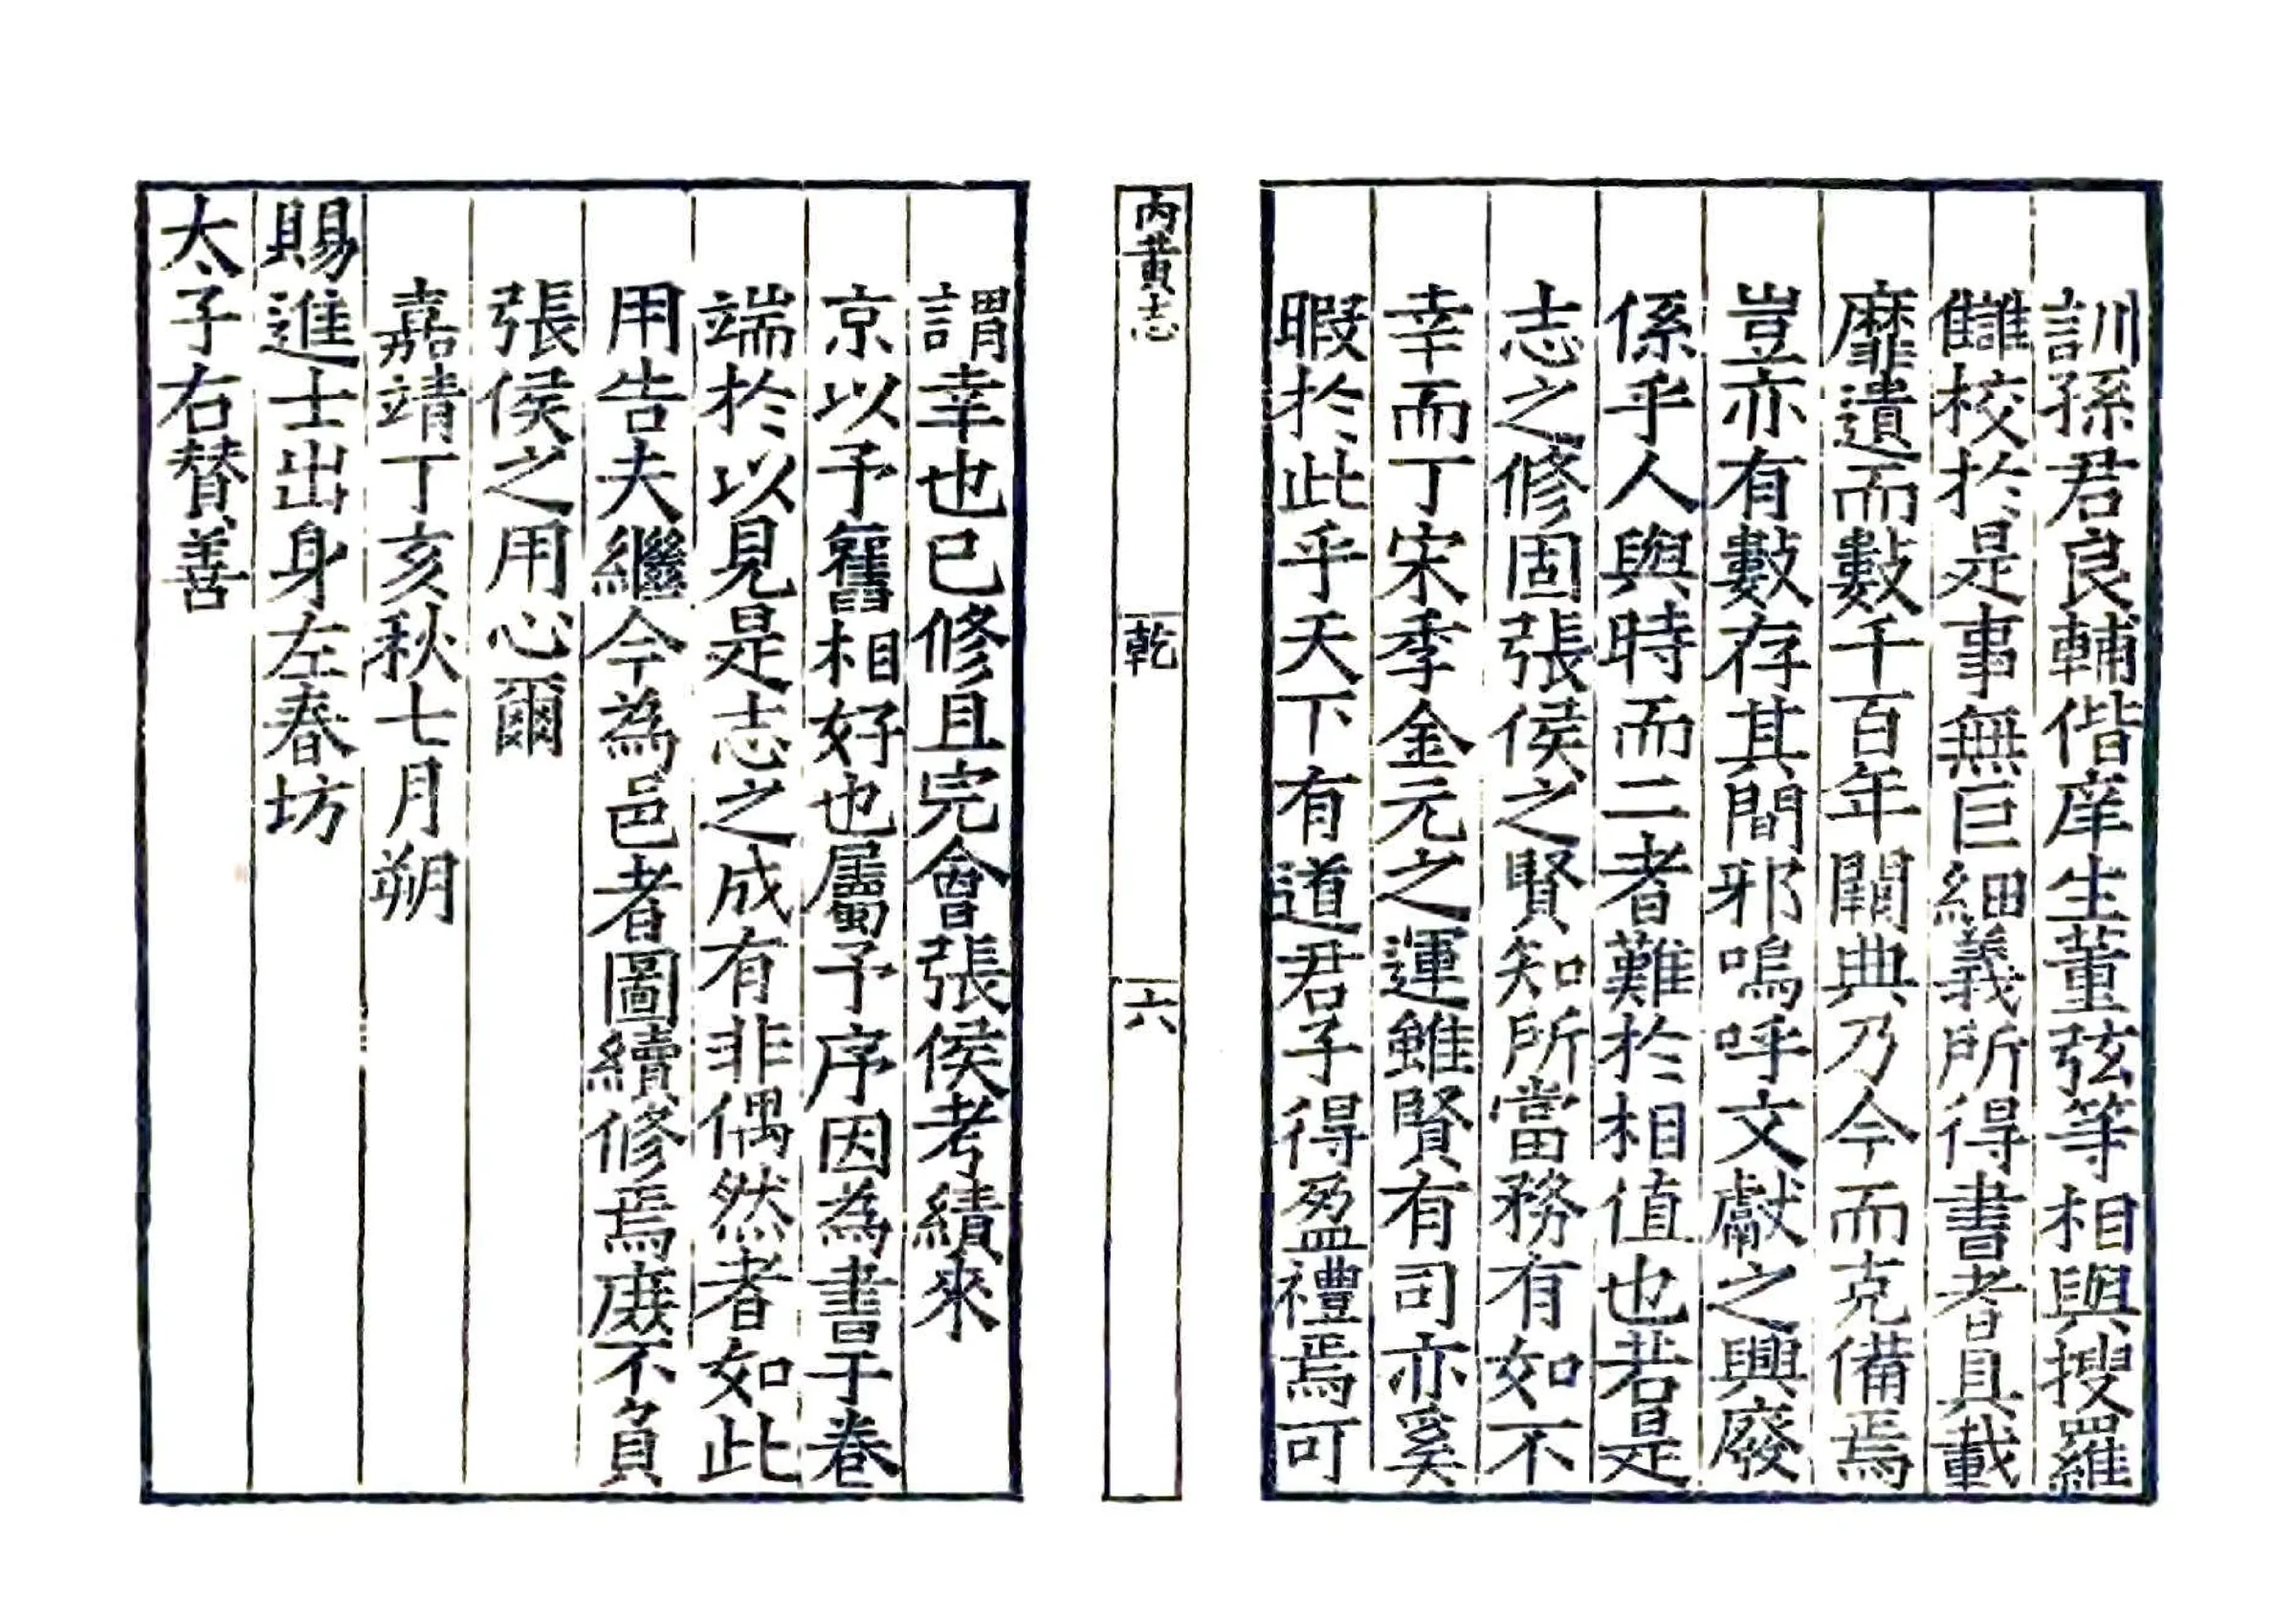 訓孫君良輔偕庠生董弦等相與搜羅
讎校於是事無巨細義所得書者具載
靡遺而數千百年闕典乃今而克備焉
豈亦有數存其間邪嗚呼文獻之興廢
係乎人與時而二者難於相值也若是
志之修固張侯之賢知所當務有如不
幸而丁宋季金元之運雖賢有司亦奚
暇於此乎天下有道君子得盈禮焉可
内黃志
乾
六
謂幸也已修且完會張侯考績來
京以予舊相好也屬予序因為書于卷
端於以見是志之成有非偶然者如此
用告夫繼今為邑者圖續修焉庶不負
張侯之用心爾
嘉靖丁亥秋七月朔
賜進士出身左春坊
太子右贊善